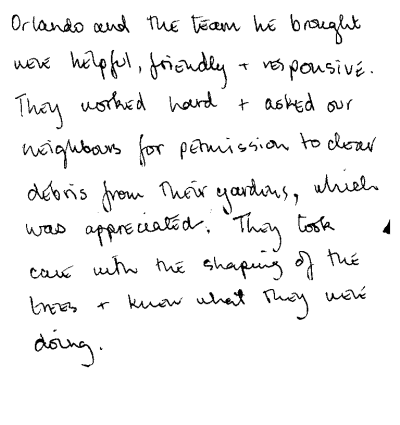 Orlando and the team he brought
were helpful, friendly + responsive.
They worked hard + asked our
neighbours for permission to clear
debris from their gardens, which
was appreciated. They took
care with the shaping of the
trees + knew what they were
doing.